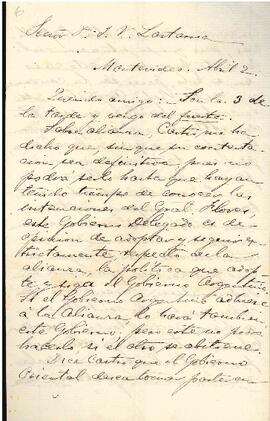 6
Señor Dn. J. V. Lastarria
Montevideo, Abril 2
Querido amigo: Son las 3 de
la tarde y vengo del puerto.
Sobre alianza, Castro me ha
dicho que, sin que su contesta
cion sea definitiva, pues no
podrá serlo hasta que hayan
tenido tiempo de conocer las
intenciones del Gral. Flores,
este Gobierno Delegado es de
decision de adoptar y seguir es
trictamente, respecto de la
alianza, la política que adop
te y siga el Gobierno Argentino.
Si el Gobierno Argentino adhiere
á la Alianza lo hará tambien
este Gobierno, pero este no podrá
hacerlo si el otro se abstiene.
Dice Castro que el Gobierno
Oriental desea tomar parte en